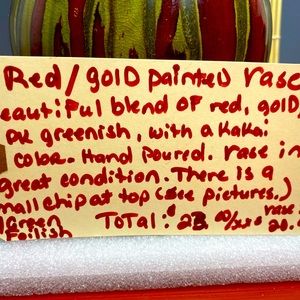 Red/gold painted vase
eautiful blend of red, gold
ak greenish, with a Kakai
color. Hand Poured. vase in
great condition. There is a
mall chip at top (See pictures.)
Total: